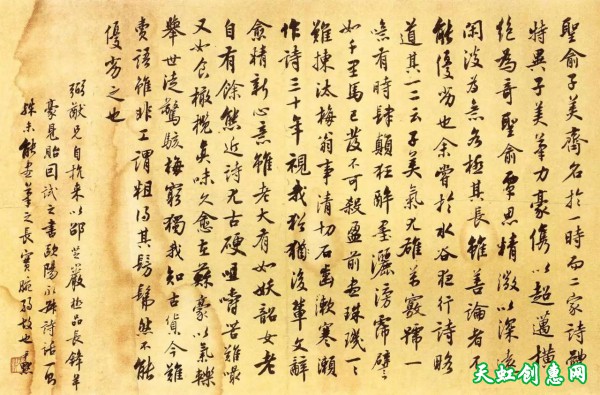 聖俞子美齊名於一時而二家詩體
特異子美筆力豪儁以超邁橫
絕為奇聖俞覃思精微以深遠
閑淡為意各極其長雖善論者不
能優劣也余嘗於水谷夜行詩略
道其一二云子美氣尤雄萬竅號一
噫有時肆顛狂醉墨灑滂霈譬
如千里馬已發不可殺盈前盡珠璣一一
難揀汰梅翁事清切石齒漱寒瀨
作詩三十年視我猶猶後輩文辭
愈精新心意雖老大有如妖韶女老
自有餘態近詩尤古硬咀嚼苦難嘬
又如食橄欖真味久愈在蘇豪以氣轢
舉世徒驚駭梅窮獨我知古貨今難
賣語雖非工謂粗得其髣髴然不能
優劣之也
弼猷兄自杭來以邵芝巖極品長鋒羊
毫見貽回試之書歐陽永叔詩話一
殊未能盡筆之長實腕弱故也 默
天虹创惠网